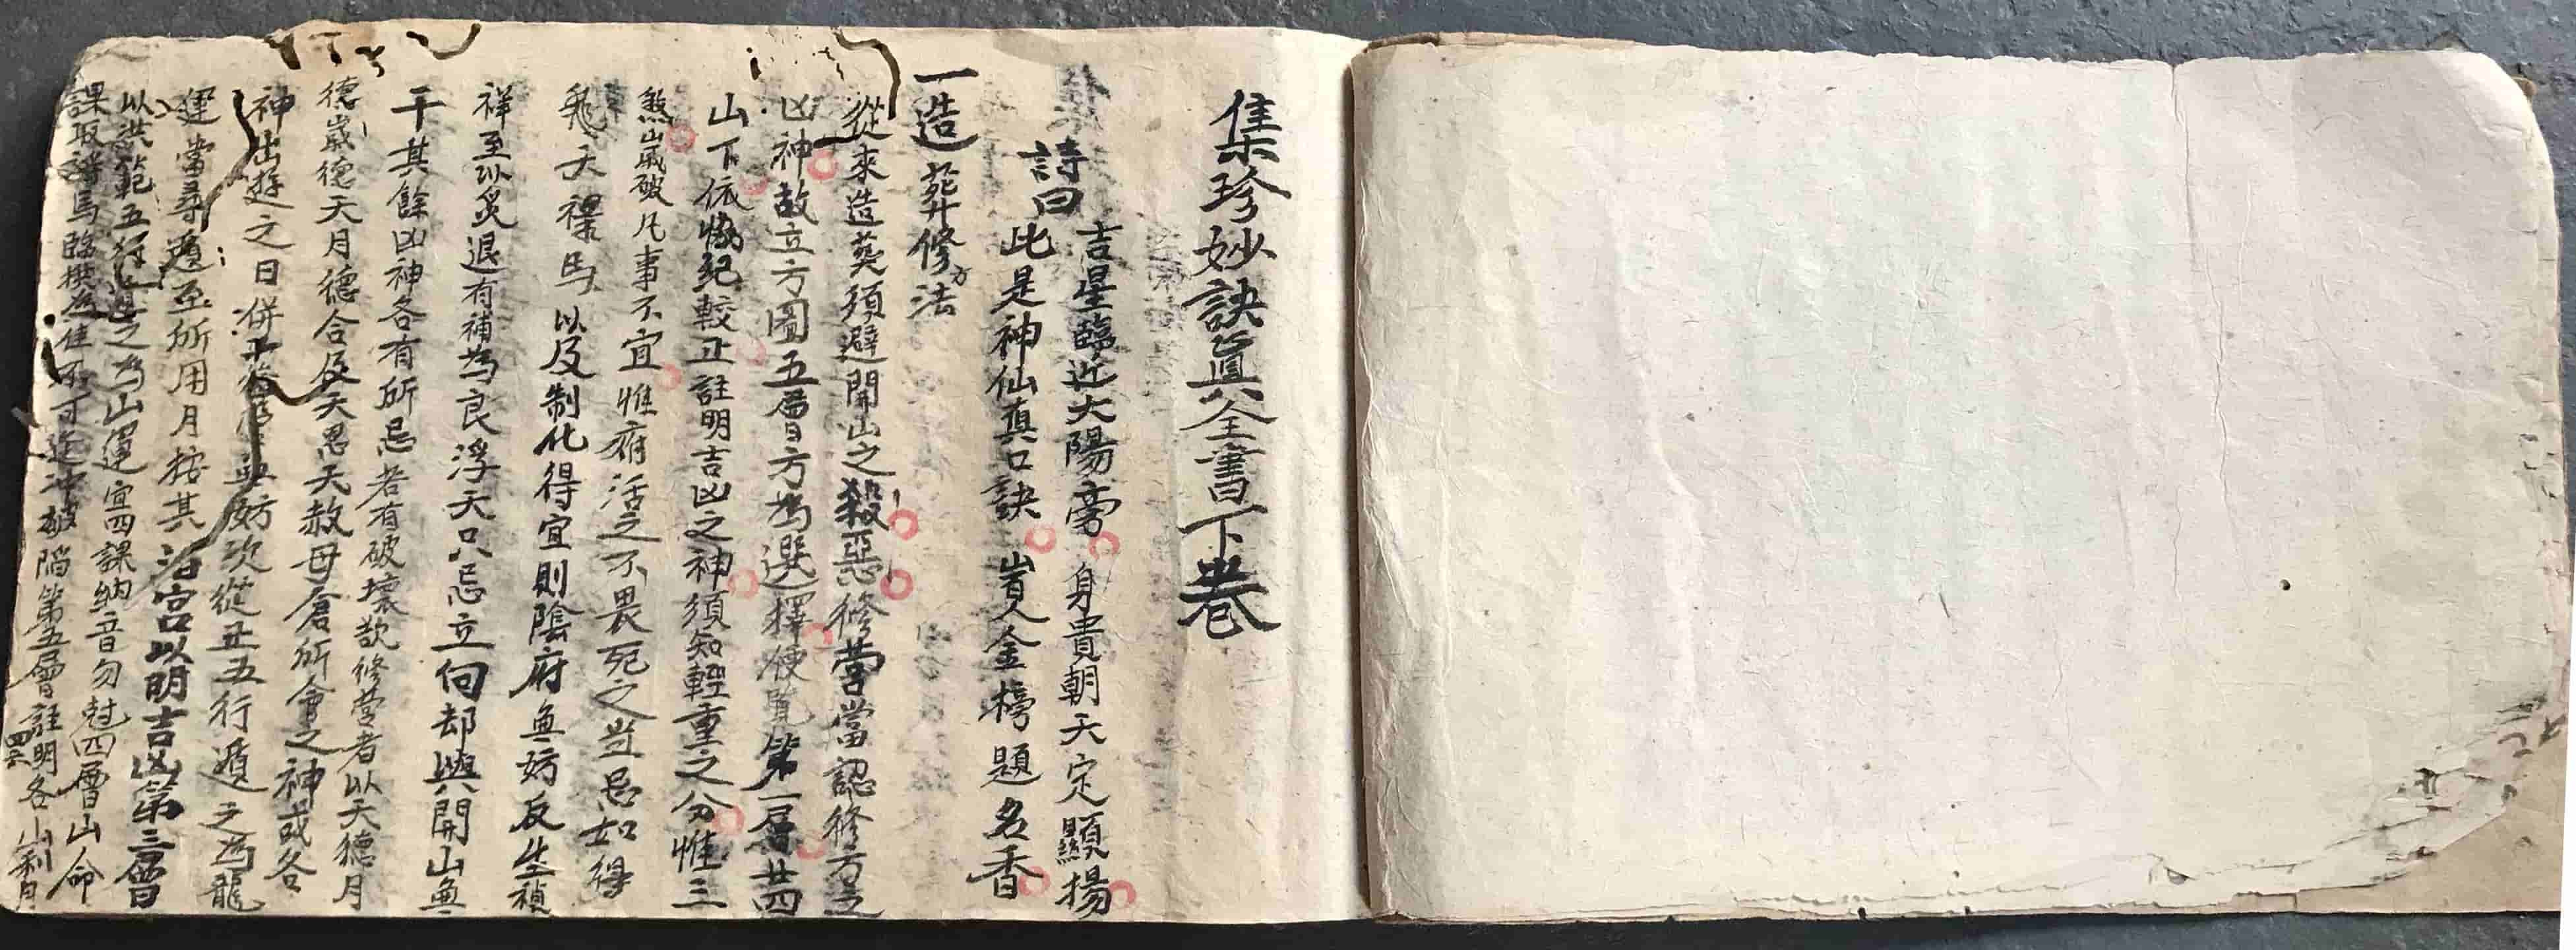 集珍妙訣真全書下卷
詩曰
吉星臨近太陽旁 身貴朝天定顯揚
此是神仙真口訣 貴人金榜題名香
一造葬修方法
從來造葬須避開山之殺惡修營當認修方之
凶神故立方圖五層日方為選擇便覧第一層廿四
山下依協紀較正註明吉凶之神須知輕重之分惟三
煞歲破凡事不宜惟府活之不畏死之豈忌如得
天祿馬以及制化得宜則陰府無妨反生禎
祥至以炙退有補為良浮天只忌立向却與開山無
干其餘凶神各有所忌若有破壞欲修營者以天德月
德歲德天月德合及天恩天赦母倉所會之神或各
神出遊之日併無妨次從正五行遁之為龍
運當尋遁至所用月按其治宮以明吉凶第三層
以洪範五行遁之為山運宜四課納音勿尅四層山命
課取祿馬臨撰為佳不可冲破陷第五層註明各山利月